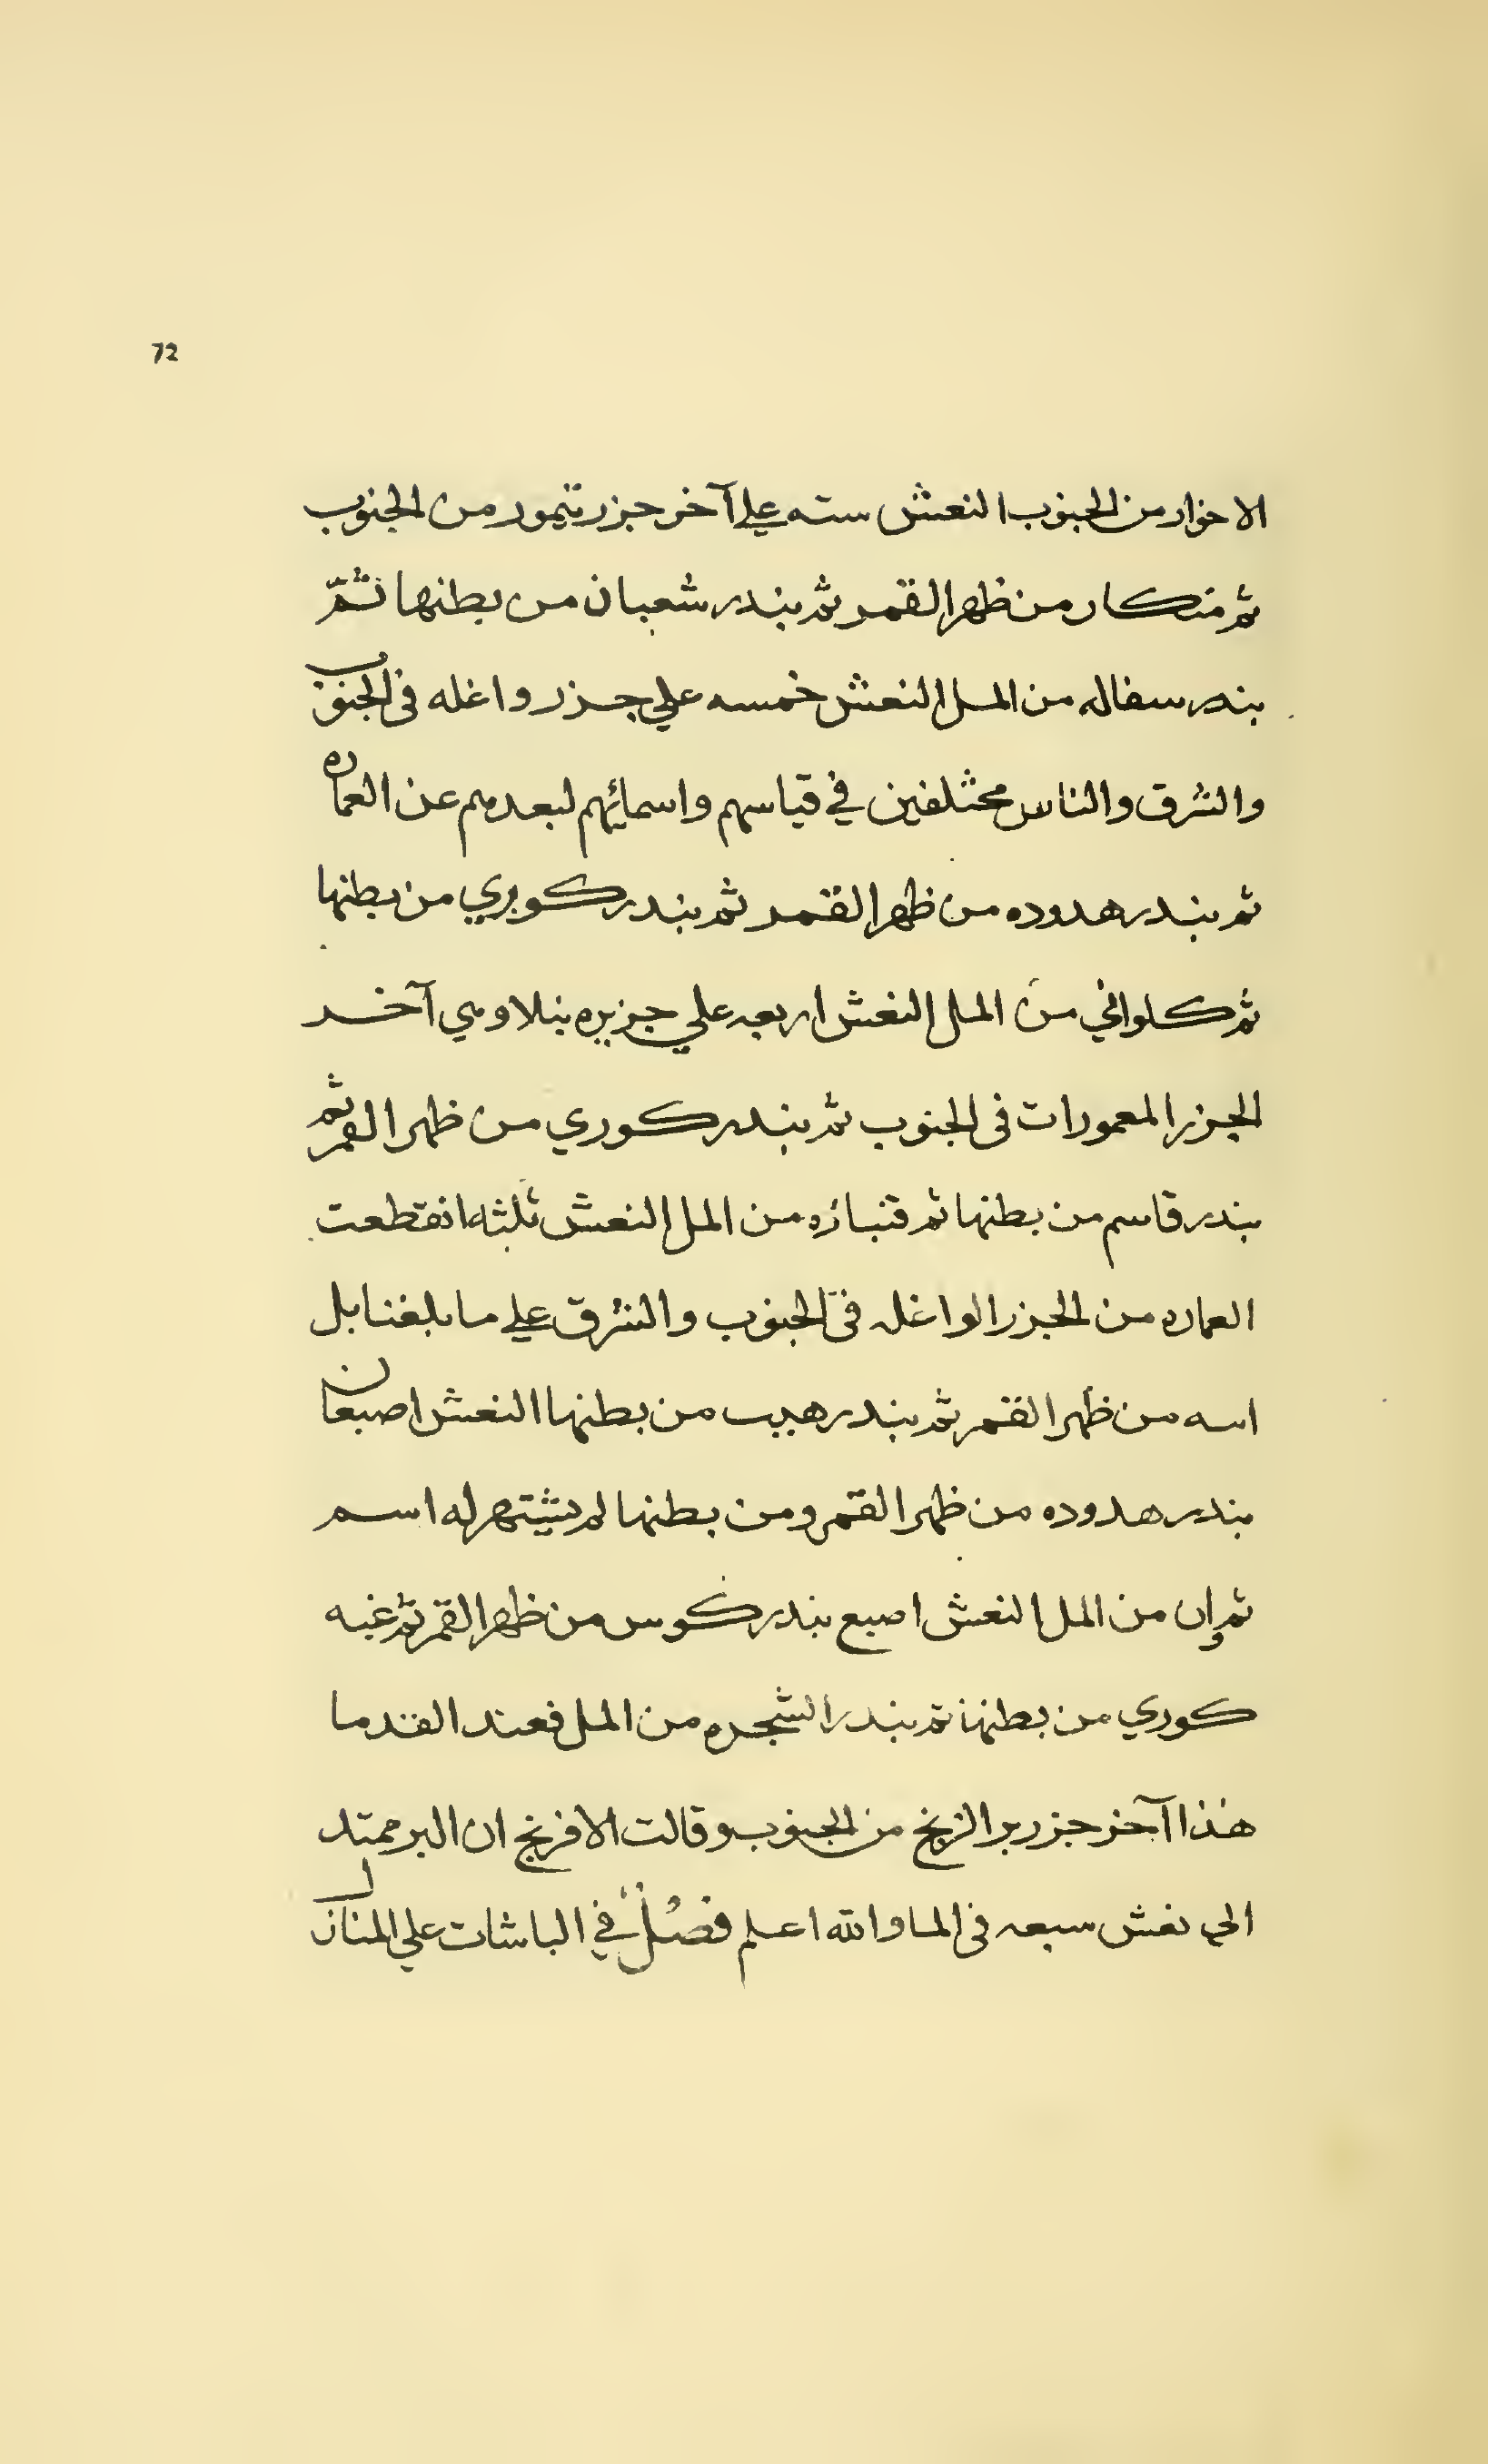 72
الاخوار من الجنوب النعش سته علي آخر جزر تيمور من الجنوب
ثم منكار من ظهر القمر ثم بندر شعبان من بطنها ثمّ
بندر سفاله من المل النعش خمسه علي جزر واغله في الجنوب
والشرق والناس مختلفين في قياسهم واسمائهم لبعدهم عن العماره
ثم بندر هدوده من ظهر القمر ثم بندر كوبري من بطنها
ثم كلواني من المل النعش اربعه علي جزيره بنلاوهي آخر
الجزر المعمورات في الجنوب ثم بندر كوري من ظهر القمر ثم
بندر قاسم من بطنها ثم من المل النعش ثلثه انقطعت
العماره من الجزر الواغله في الجنوب والشرق علي ما بلغنا بل
اسه من ظهر القمر ثم بندر هيب من بطنها النعش اصبعان
بندر هدوده من ظهر القمر ومن بطنها لم يشتهر له اسم
ثم وان من المل النعش اصبع بندر كوس من ظهر القمر ثم غبه
كوري من بطنها ثم بندر الشجره من المل فعند القدما
هذا آخر جزر بر الزنج من الجنوب وقالت الافرنج ان البر ممتد
الي نعش سبعه في الما والله اعلم فصل في الباشات علي المنازل